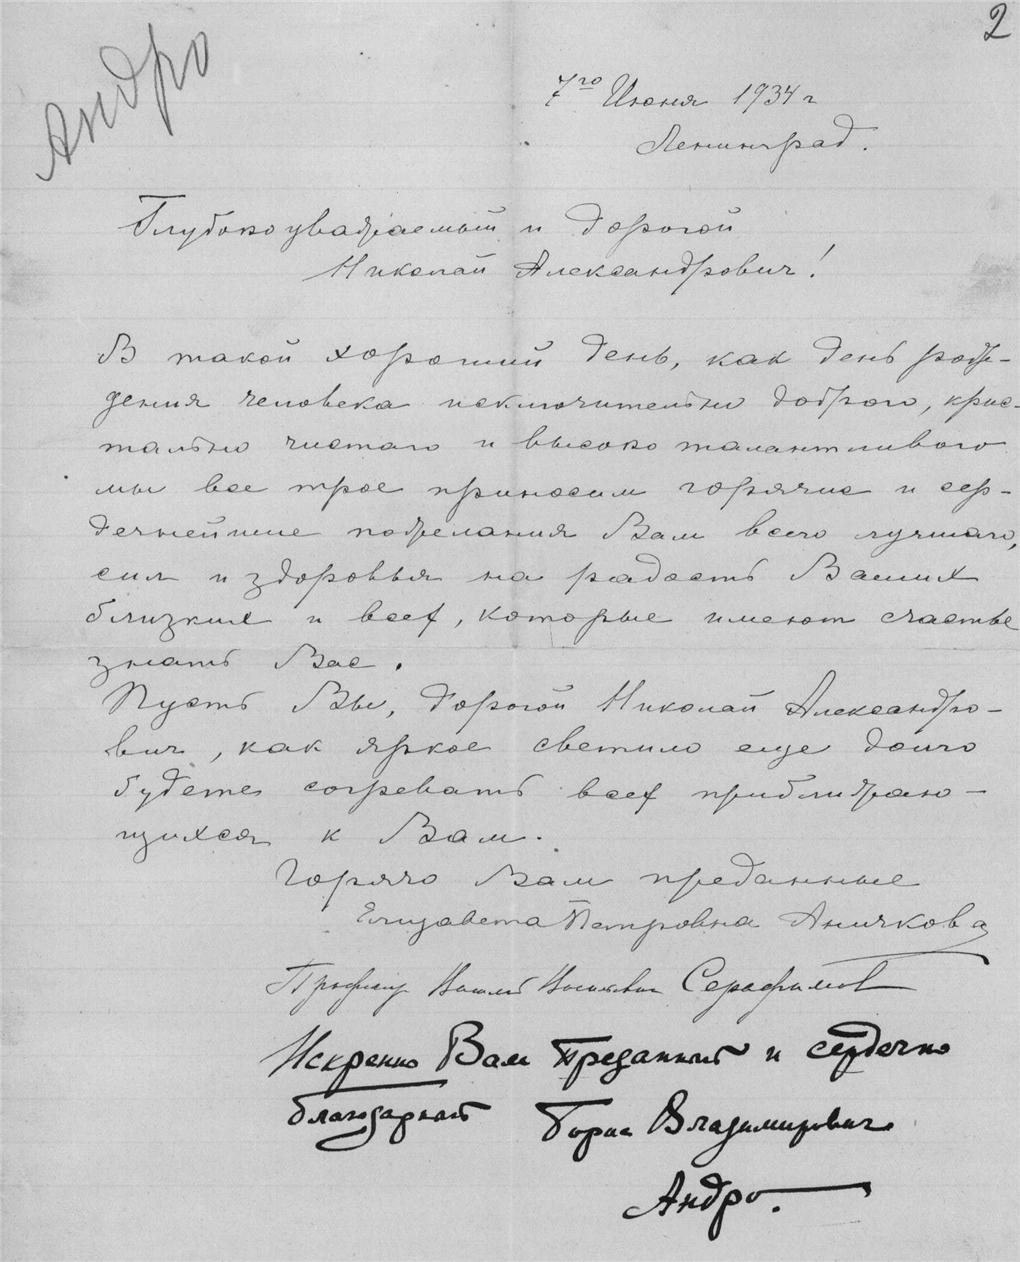 2
Андро
7го Июня 1934 г
Ленинград.
Глубокоуважаемый и дорогой
Николай Александрович!
В такой хороший день, как день рож-
дения человека исключительно доброго, крис-
тально чистаго и высоко талантливого
мы все трое приносим горячие и сер-
дечнейшие пожелания Вам всего лучшаго,
сил и здоровья на радость Ваших
близких и всех, которые имеют счастье
знать Вас.
Пусть Вы, дорогой Николай Александро-
вич, как яркое светило еще долго
будете согревать всех приближаю-
щихся к Вам.
Горячо Вам преданные
Елизавета Петровна Аничкова
Профессор Васильевич Серафимов
Искренно Вам преданный и сердечно
благодарный Борис Владимирович
Андро.